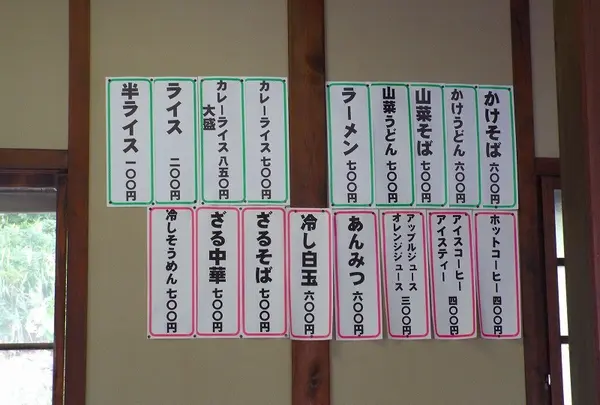 かけそば 六〇〇円
かけうどん 六〇〇円
山菜そば 七〇〇円
山菜うどん 七〇〇円
ラーメン 七〇〇円
カレーライス 七〇〇円
カレーライス 八五〇円
大盛
ライス 二〇〇円
半ライス 一〇〇円
ホットコーヒー 四〇〇円
アイスコーヒー
アイスティー 四〇〇円
アップルジュース
オレンジジュース 三〇〇円
あんみつ 六〇〇円
冷し白玉 六〇〇円
ざるそば 七〇〇円
ざる中華 七〇〇円
冷しそうめん 七〇〇円